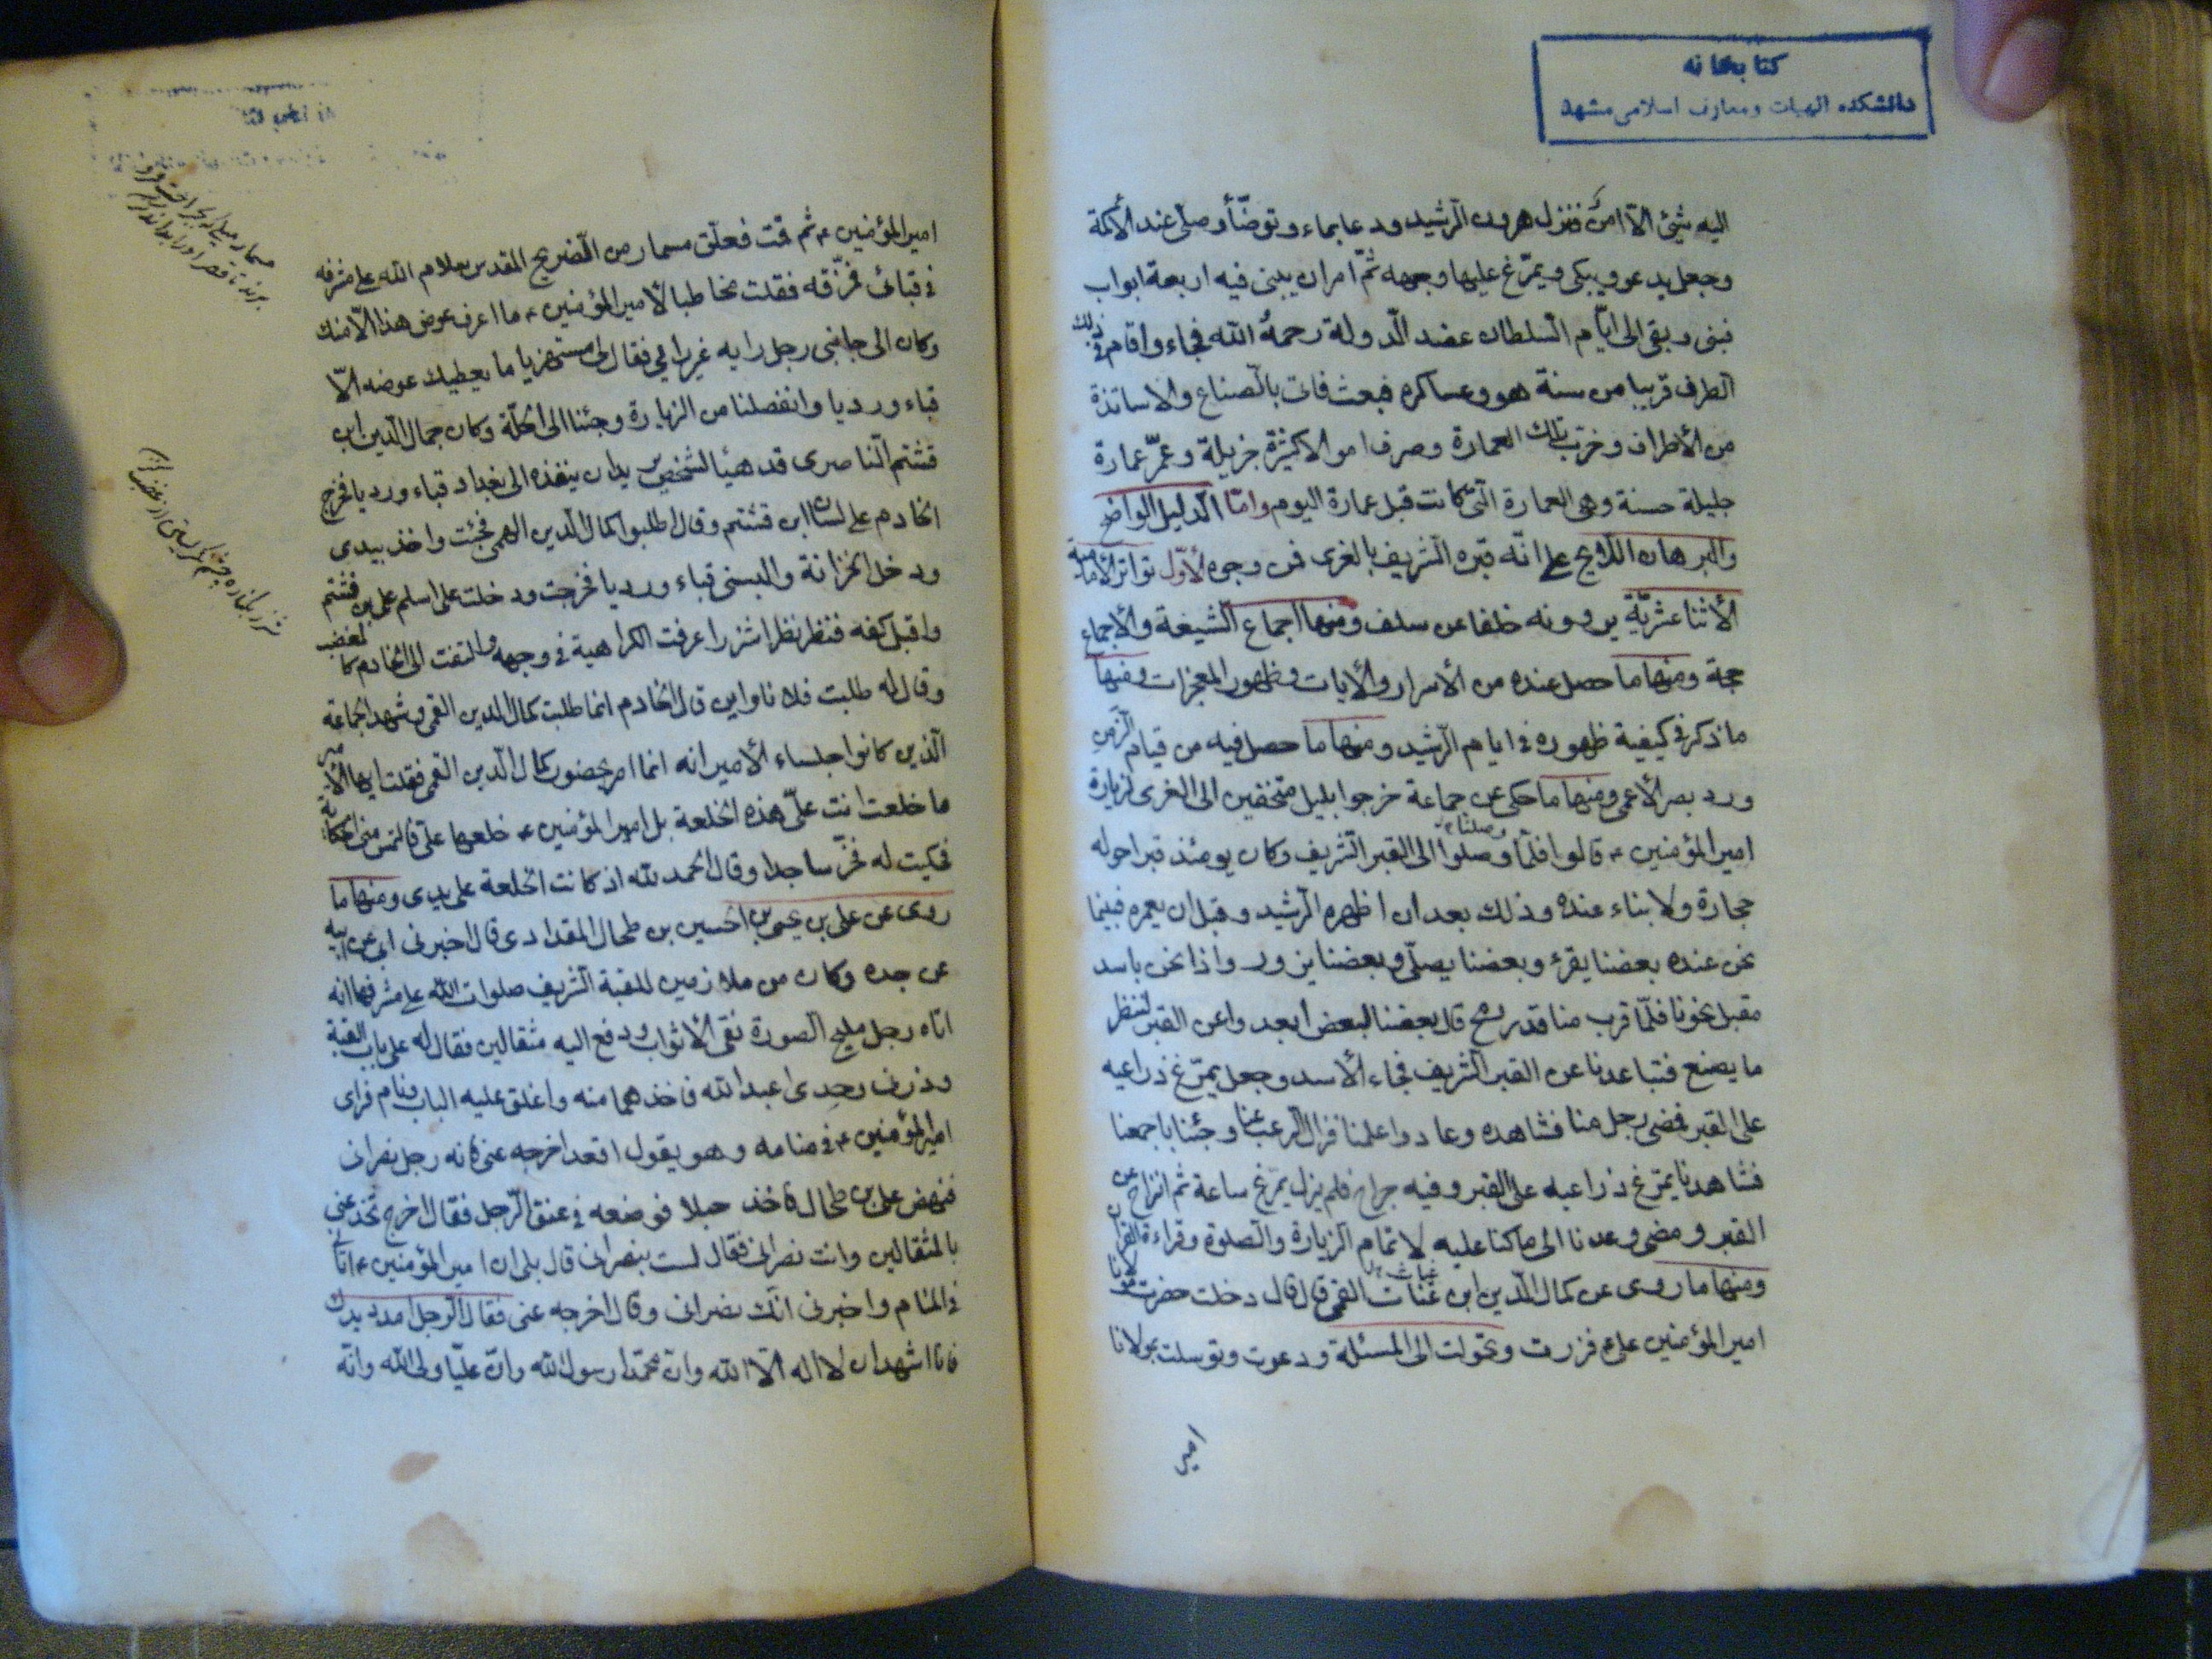 كتابخانه
دانشكده الهيات ومعارف اسلامى مشهد
اليه شيئ الا امن فنزل هرون الرشيد ودعا بماء وتوضّأ وصلى عند الأكمة
وجعل يدعو ويبكى ويمرّغ عليها وجهه ثمّ امر ان يبنى فيه اربعة ابواب
فبنى وبقى الى ايّام السلطان عضد الدولة رحمه الله فجاء واقام فى ذلك
الطرف قريبا من سنة هو وعساكره فبعث فات بالصناع والاساتذة
من الأطراف وخرّب تلك العمارة وصرف اموالا كثيرة جزيلة وعمّر عمارة
جليلة حسنة وهى العمارة الّتى كانت قبل عمارة اليوم وامّا الدليل الواضح
والبرهان اللايح على انّه قبره الشريف بالغرى فمن وجوه الأوّل تواتر الأمامية
الأثنا عشريّة يروونه خلفا عن سلف ومنها اجماع الشيعة والأجماع
حجة ومنها ما حصل عنده من الأسرار والأيات وظهور المعجزات ومنها
ما ذكر فى كيفية ظهوره فى ايام الرشيد ومنها ما حصل فيه من قيام الزمن
ورد بصر الأعمى ومنها ما حكى عن جماعة خرجوا بليل متخفين الى الغرى لزيارة
امير المؤمنين ع قالوا فلمّا وصلوا الى القبر الشريف وكان يومئذ قبرا حوله
وصلنا
حجارة ولا بناء عنده وذلك بعد ان اظهره الرشيد وقبل ان يعمره فبينما
نحن عنده بعضنا يقرء وبعضنا يصلّى وبعضنا يزور واذا نحن باسد
مقبل نحونا فلمّا قرب منا قدر رمح قال بعضنا لبعض ابعدوا عن القبر لننظر
ما يصنع فتباعدنا عن القبر الشريف فجاء الأسد وجعل يمرّغ ذراعيه
على القبر فمضى رجل منا فشاهده وعاد واعلمنا فزال الرعب عنا وجئنا باجمعنا
فشاهدنا يمرّغ ذراعيه على القبر وفيه جراح فلم يزل يمرّغ ساعة ثم انزاح عن
القبر ومضى وعدنا الى ما كنا عليه لاتمام الزيارة والصلوة وقراءة القران
ومنها ما روى عن كمال الدين ابن غنات القمى قال قال دخلت حضرت مولانا
غياث
امير المؤمنين على ع فزرت وتحولت الى المسئلة ودعوت وتوسلت بمولانا
امير
امير المؤمنين ع ثم قمت فعلّق مسمار من الضريح المقدس سلام الله على مشرفه
فى قبائى فمزّقه فقلت مخاطبا لأمير المؤمنين ع ما اعرف عوض هذا الّا منك
وكان الى جانبى رجل رايه غير رايى فقال لى مستهزيا ما يعطيك عوضه الّا
قباء ورديا وانفصلنا من الزيارة وجئنا الى الحلّة وكان جمال الدين ابن
قشتم الناصرى قد هيّأ لشخص يريد ان ينفذه الى بغداد قباء ورديا فخرج
الخادم على لسان ابن قشتم وقال اطلبوا كمال الدين القمى فجئت واخذ بيدى
ودخل الخزانة والبسنى قباء ورديا فخرجت ودخلت على اسلم على بن قشتم
واقبل كفه فنظر نظرا شزرا عرفت الكراهية فى وجهه والتفت الى الخادم كالمغضب
وقال له طلبت فلانا واين قال الخادم انما طلبت كمال الدين القمى وشهد الجماعة
الّذين كانوا جلساء الأمير انه انما امر بحضور كمال الدين القمى فقلت ايها الأمير
ما خلعت انت علىّ هذه الخلعة بل امير المؤمنين ع خلعها علىّ فالتمس منى الحكاية
فحكيت له فخرّ ساجدا وقال الحمد لله اذ كانت الخلعة على يدى ومنها ما
روى عن على بن يحيى بن الحسين بن طحال المقدادى قال اخبرنى ابى عن ابيه
عن جده وكان من ملازمين للقبة الشريف صلوات الله على مشرفها انه
اتاه رجل مليح الصورة نقى الأثواب ودفع اليه مثقالين فقال له على باب القبة
وذرنى وحدى اعبد الله فاخذهما منه واغلق عليه الباب فنام فراى
امير المؤمنين ع فى منامه وهو يقول اقعد اخرجه عنى فانه رجل نصرانى
فنهض على بن طحال فاخذ حبلا فوضعه فى عنق الرجل فقال اخرج تخدعنى
بالمثقالين وانت نصرانى فقال لست بنصرانى قال بلى ان امير المؤمنين ع اتانى
فى المنام واخبرنى انّك نصرانى وقال اخرجه عنى فقال الرجل امدد يدك
فانا اشهد ان لا اله الّا الله وانّ محمّدا رسول الله وانّ عليّا ولى الله وانّه